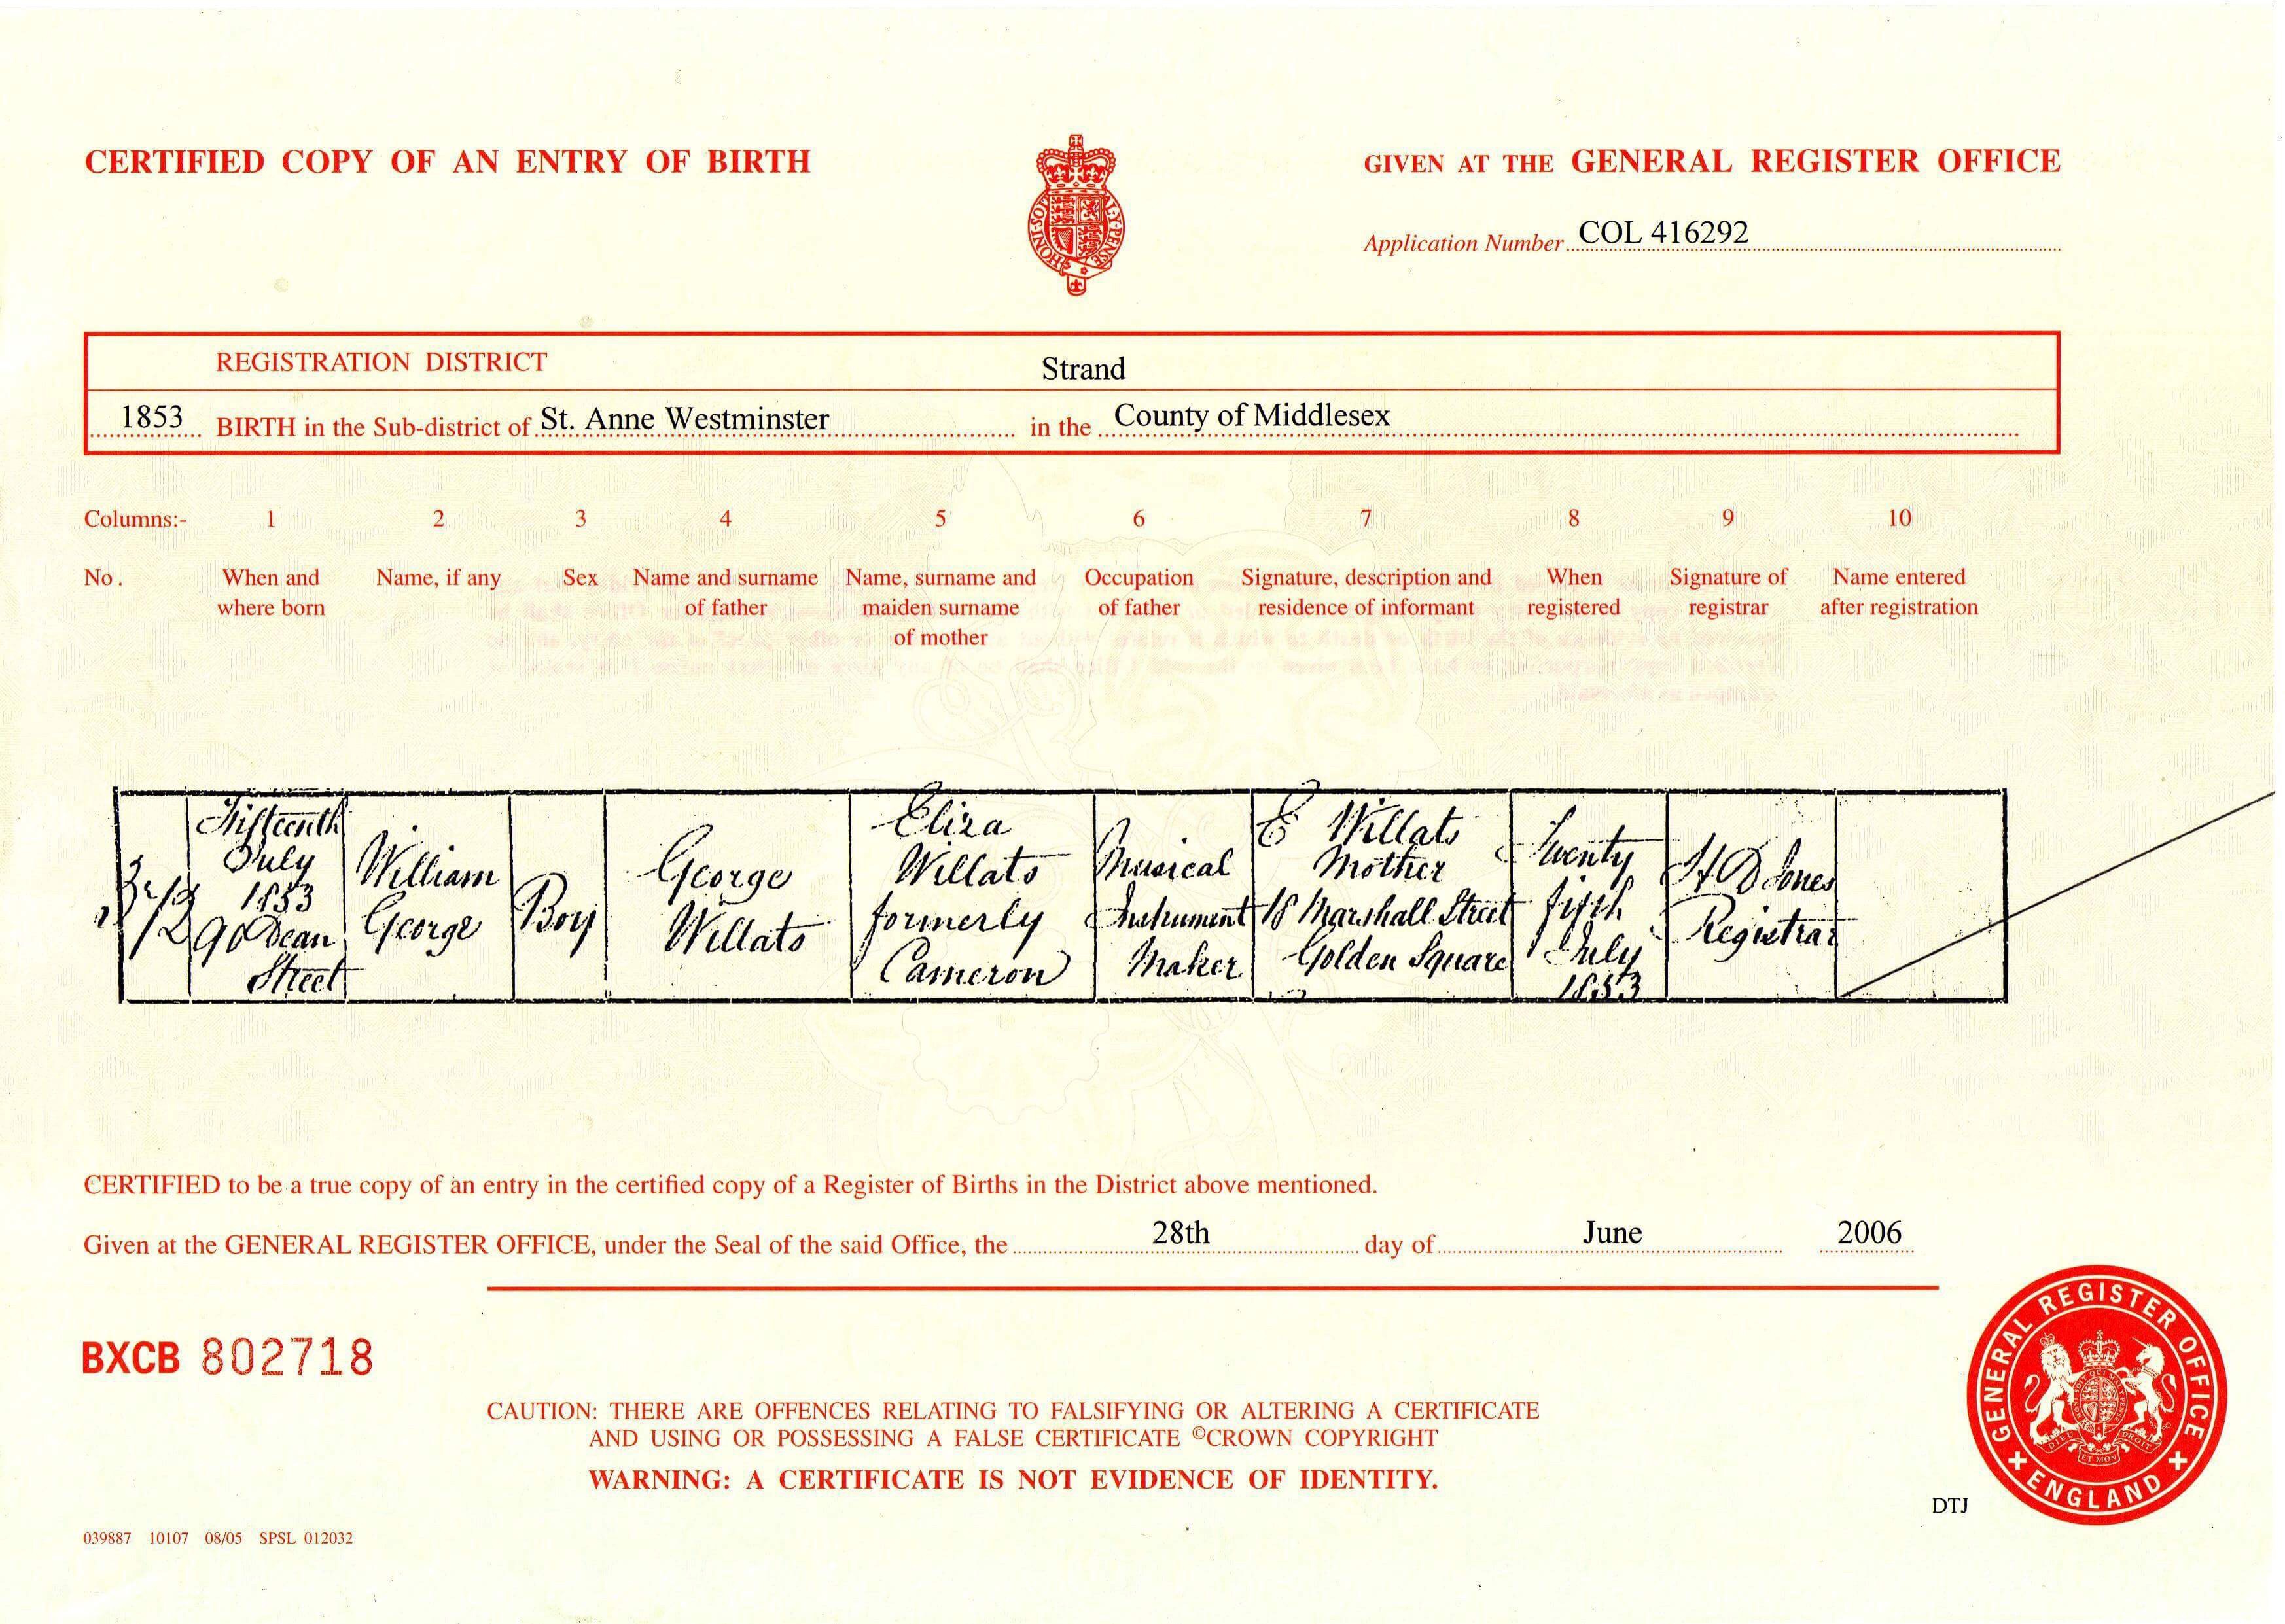 CERTIFIED COPY OF AN ENTRY OF BIRTH
HONI·SOI AL·Y·PENSE
GIVEN AT THE GENERAL REGISTER OFFICE
Application Number COL 416292
REGISTRATION DISTRICT Strand
1853 BIRTH in the Sub-district of St. Anne Westminster in the County of Middlesex
Columns:- 1 2 3 4 5 6 7 8 9 10
No. When and where born
Name, if any
Sex
Name and surname of father
Name, surname and maiden surname of mother
Occupation of father
Signature, description and residence of informant
When registered
Signature of registrar
Name entered after registration
Fifteenth
July
1853
90 Dean
Street
William
George
Boy
George
Willats
Eliza
Willats
formerly
Cameron
Musical
Instrument
Maker
E Willats
Mother
18 Marshall Street
Golden Square
Twenty
fifth
July
1853
H D Jones
Registrar
CERTIFIED to be a true copy of an entry in the certified copy of a Register of Births in the District above mentioned.
Given at the GENERAL REGISTER OFFICE, under the Seal of the said Office, the 28th day of June 2006
BXCB 802718
CAUTION: THERE ARE OFFENCES RELATING TO FALSIFYING OR ALTERING A CERTIFICATE
AND USING OR POSSESSING A FALSE CERTIFICATE ©CROWN COPYRIGHT
WARNING: A CERTIFICATE IS NOT EVIDENCE OF IDENTITY.
GENERAL REGISTER OFFICE
DIEU ET MON DROIT
ENGLAND
DTJ
039887 10107 08/05 SPSL 012032